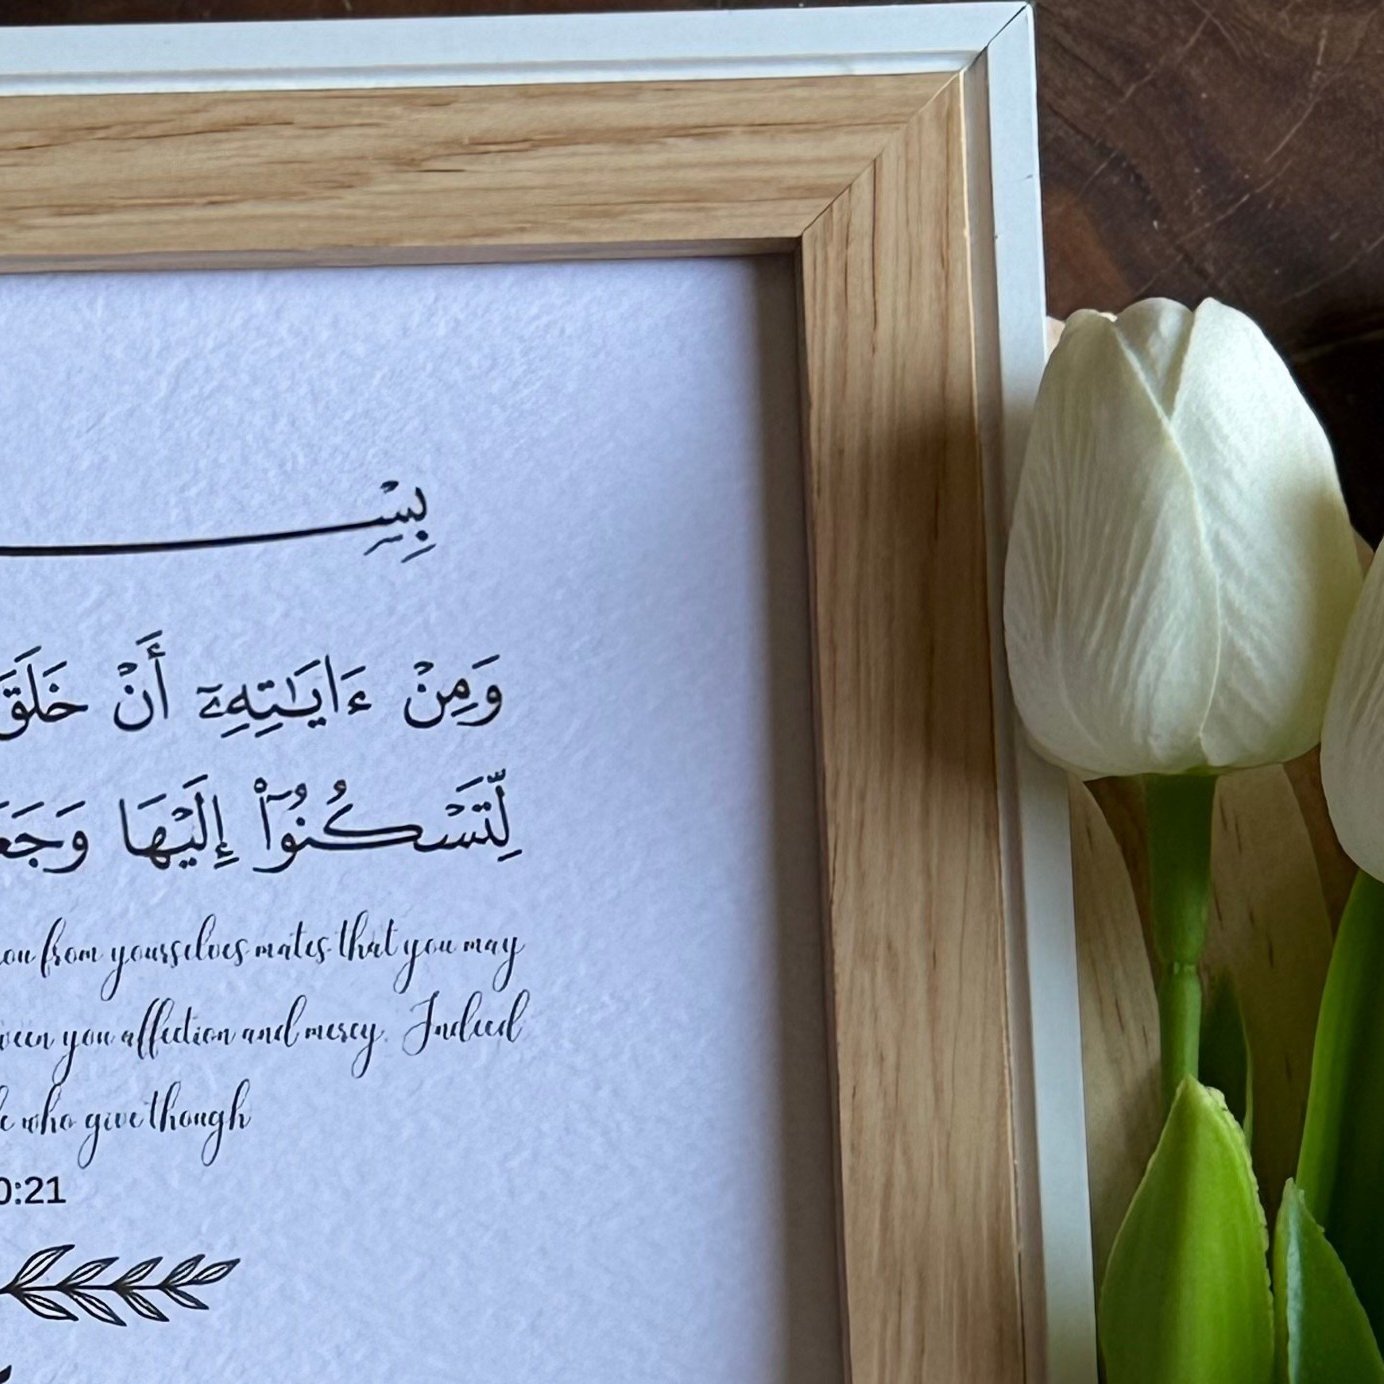 بِسْ
وَمِنْ ءَايَٰتِهِۦٓ أَنْ خَلَقَ
لِّتَسْكُنُوٓا۟ إِلَيْهَا وَجَعَ
ou from yourselves mates that you may
ween you affection and mercy. Indeed
e who give though
0:21